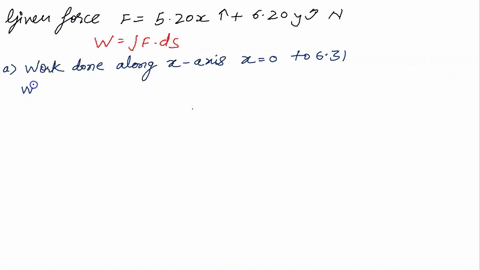 Given force F = 5.20x î + 6.20y ĵ N
W = ∫F.ds
a) Work done along x-axis x=0 to 6.31
W